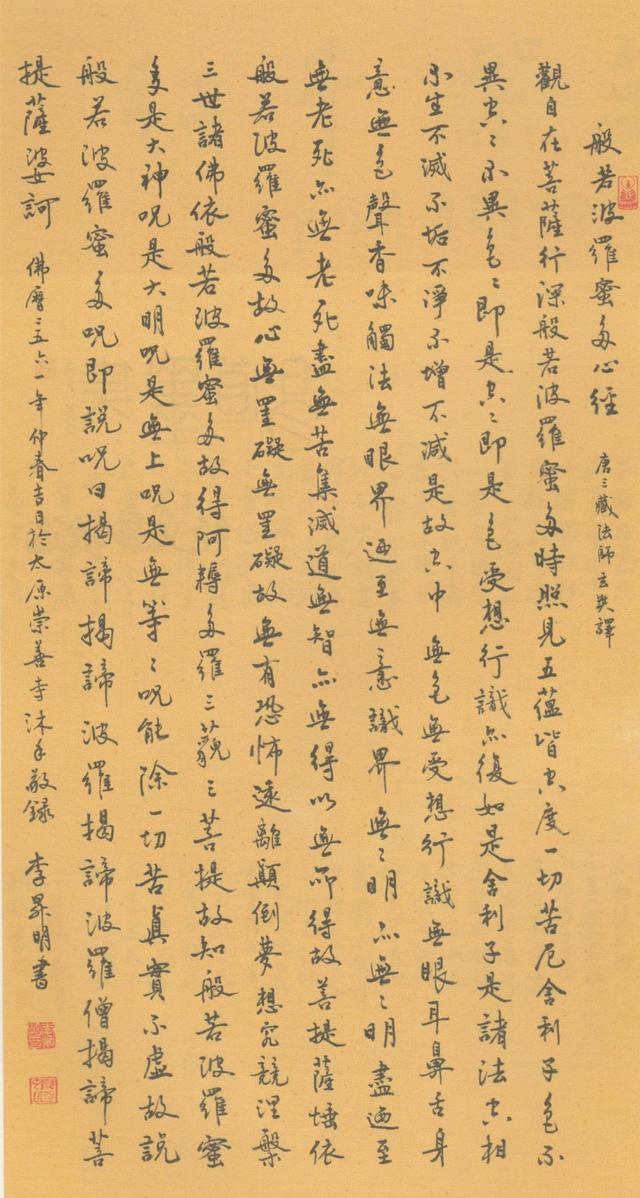 般若波羅蜜多心經 唐三藏法師玄奘譯
觀自在菩薩行深般若波羅蜜多時照見五蘊皆空度一切苦厄舍利子色不
異空〻不異色〻即是空〻即是色受想行識亦復如是舍利子是諸法空相
不生不滅不垢不淨不增不減是故空中無色無受想行識無眼耳鼻舌身
意無色聲香味觸法無眼界迺至無意識界無〻明亦無〻明盡迺至
無老死亦無老死盡無苦集滅道無智亦無得以無所得故菩提薩埵依
般若波羅蜜多故心無罣礙無罣礙故無有恐怖遠離顛倒夢想究竟涅槃
三世諸佛依般若波羅蜜多故得阿耨多羅三藐三菩提故知般若波羅蜜
多是大神呪是大明呪是無上呪是無等〻呪能除一切苦眞實不虛故說
般若波羅蜜多呪即說呪曰揭諦揭諦波羅揭諦波羅僧揭諦菩
提薩婆訶 佛曆二五六一年仲春吉日於太原崇善寺沐手敬錄 李明書